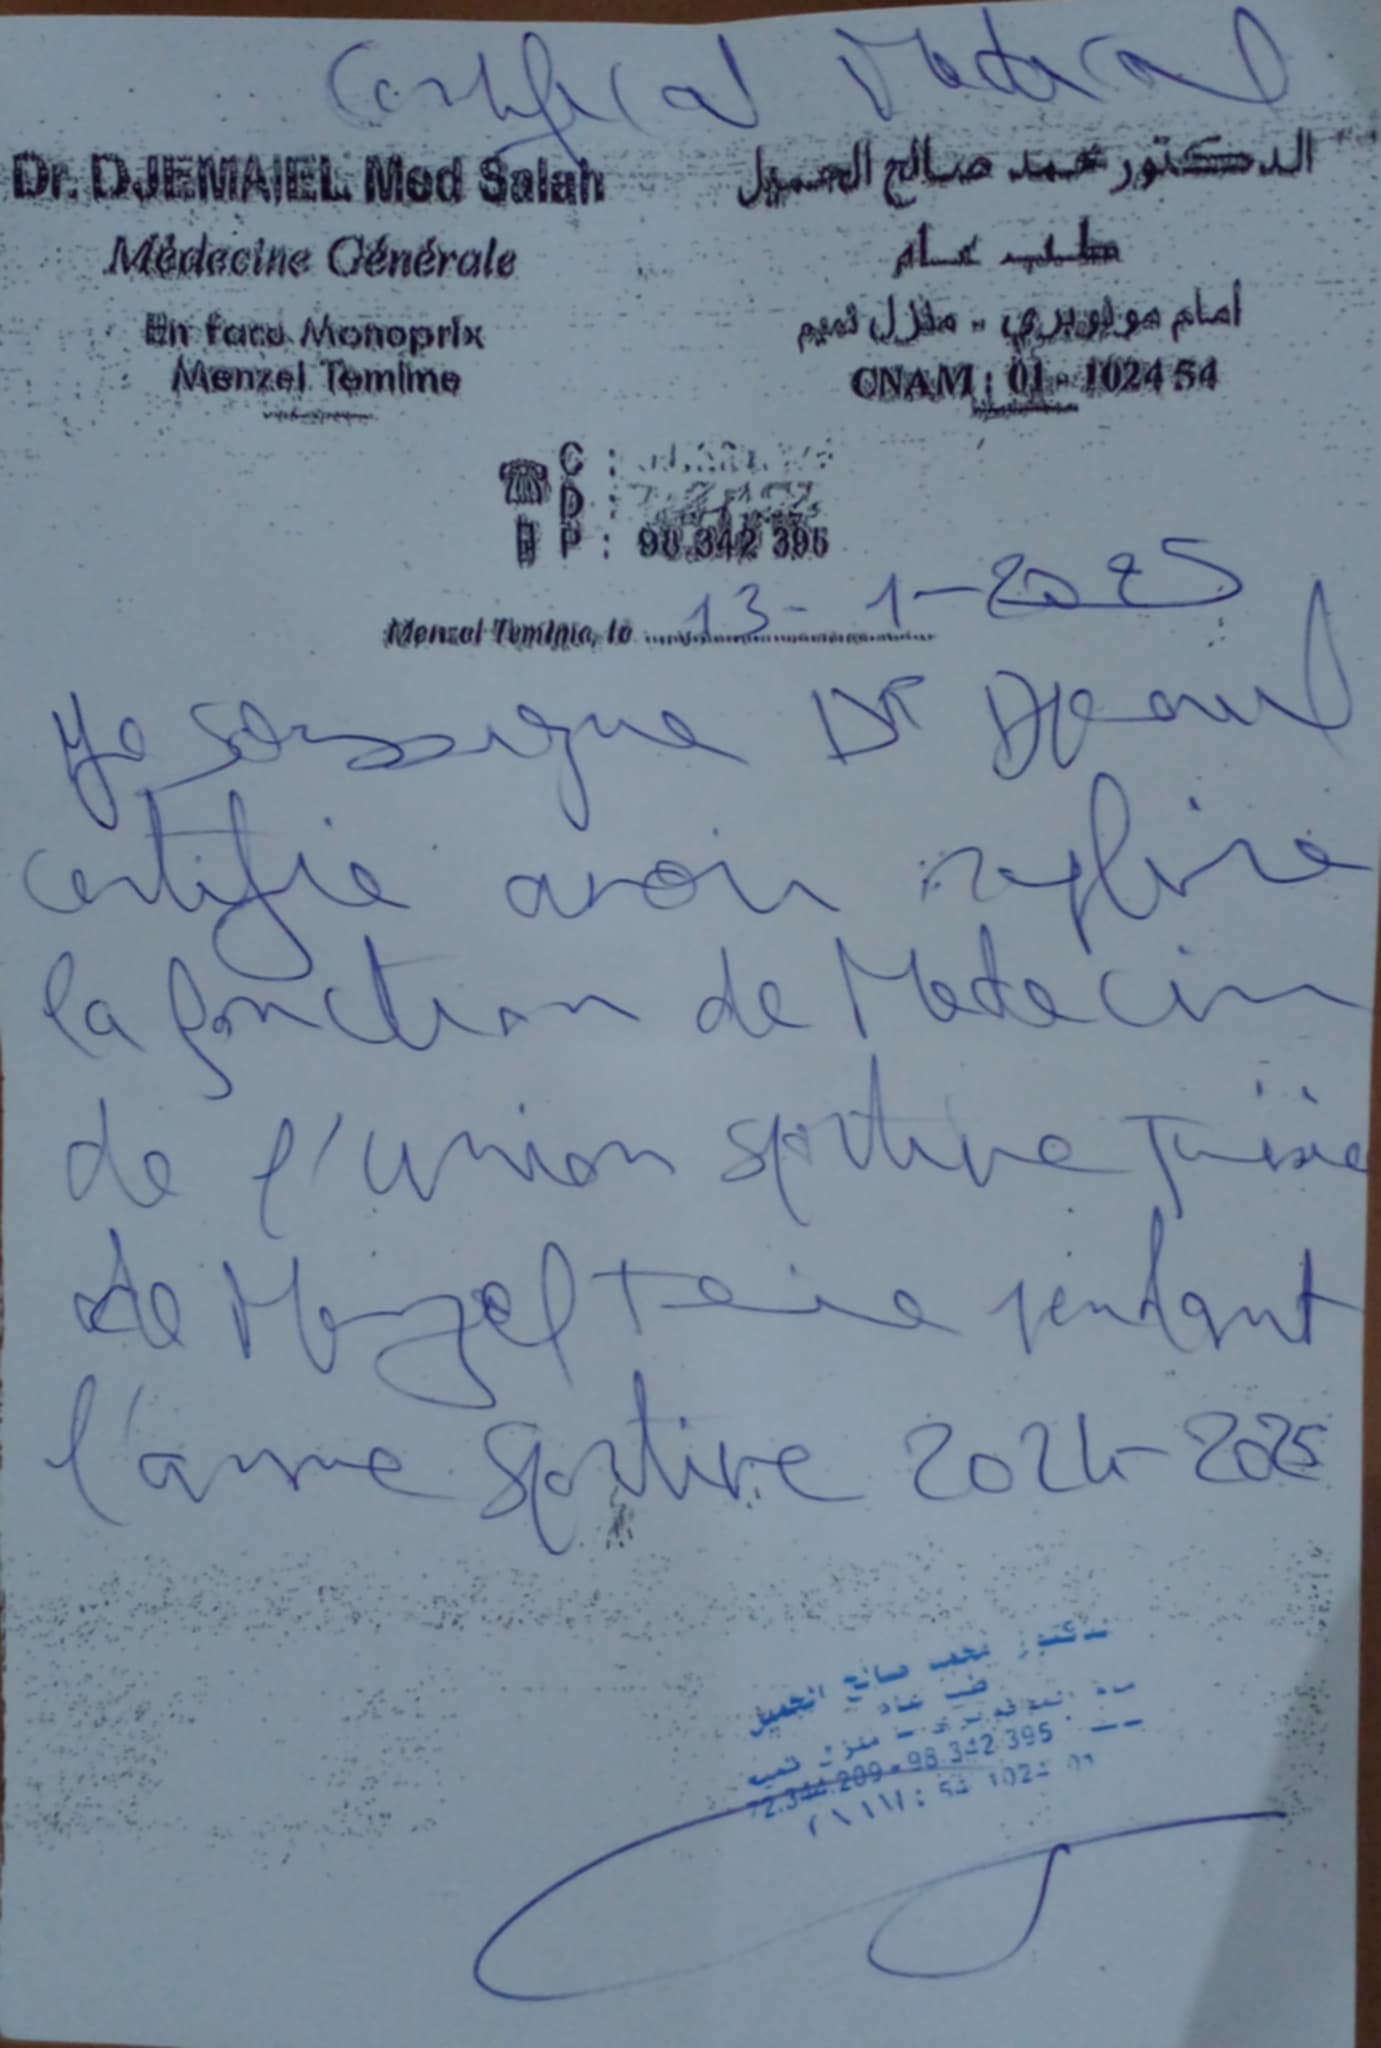 Certificat Medical
Dr. DJEMAIEL Med Salah
Médecine Générale
En face Monoprix
Menzel Temime
الدكتور محمد صالح الجميل
طب عام
أمام مونوبري - منزل تميم
CNAM : 01 - 102454
C :
D :
P : 98.342 395
Menzel Temime, le 13-1-2025
Je soussigne Dr Djemaiel
certifie avoir
la fonction de Medecin
de l'union sportive
de Menzel Temime pendant
l'annee sportive 2024-2025
دكتور محمد صالح الجميل
طب عام
منزل تميم
72.344.209 - 98.342.395